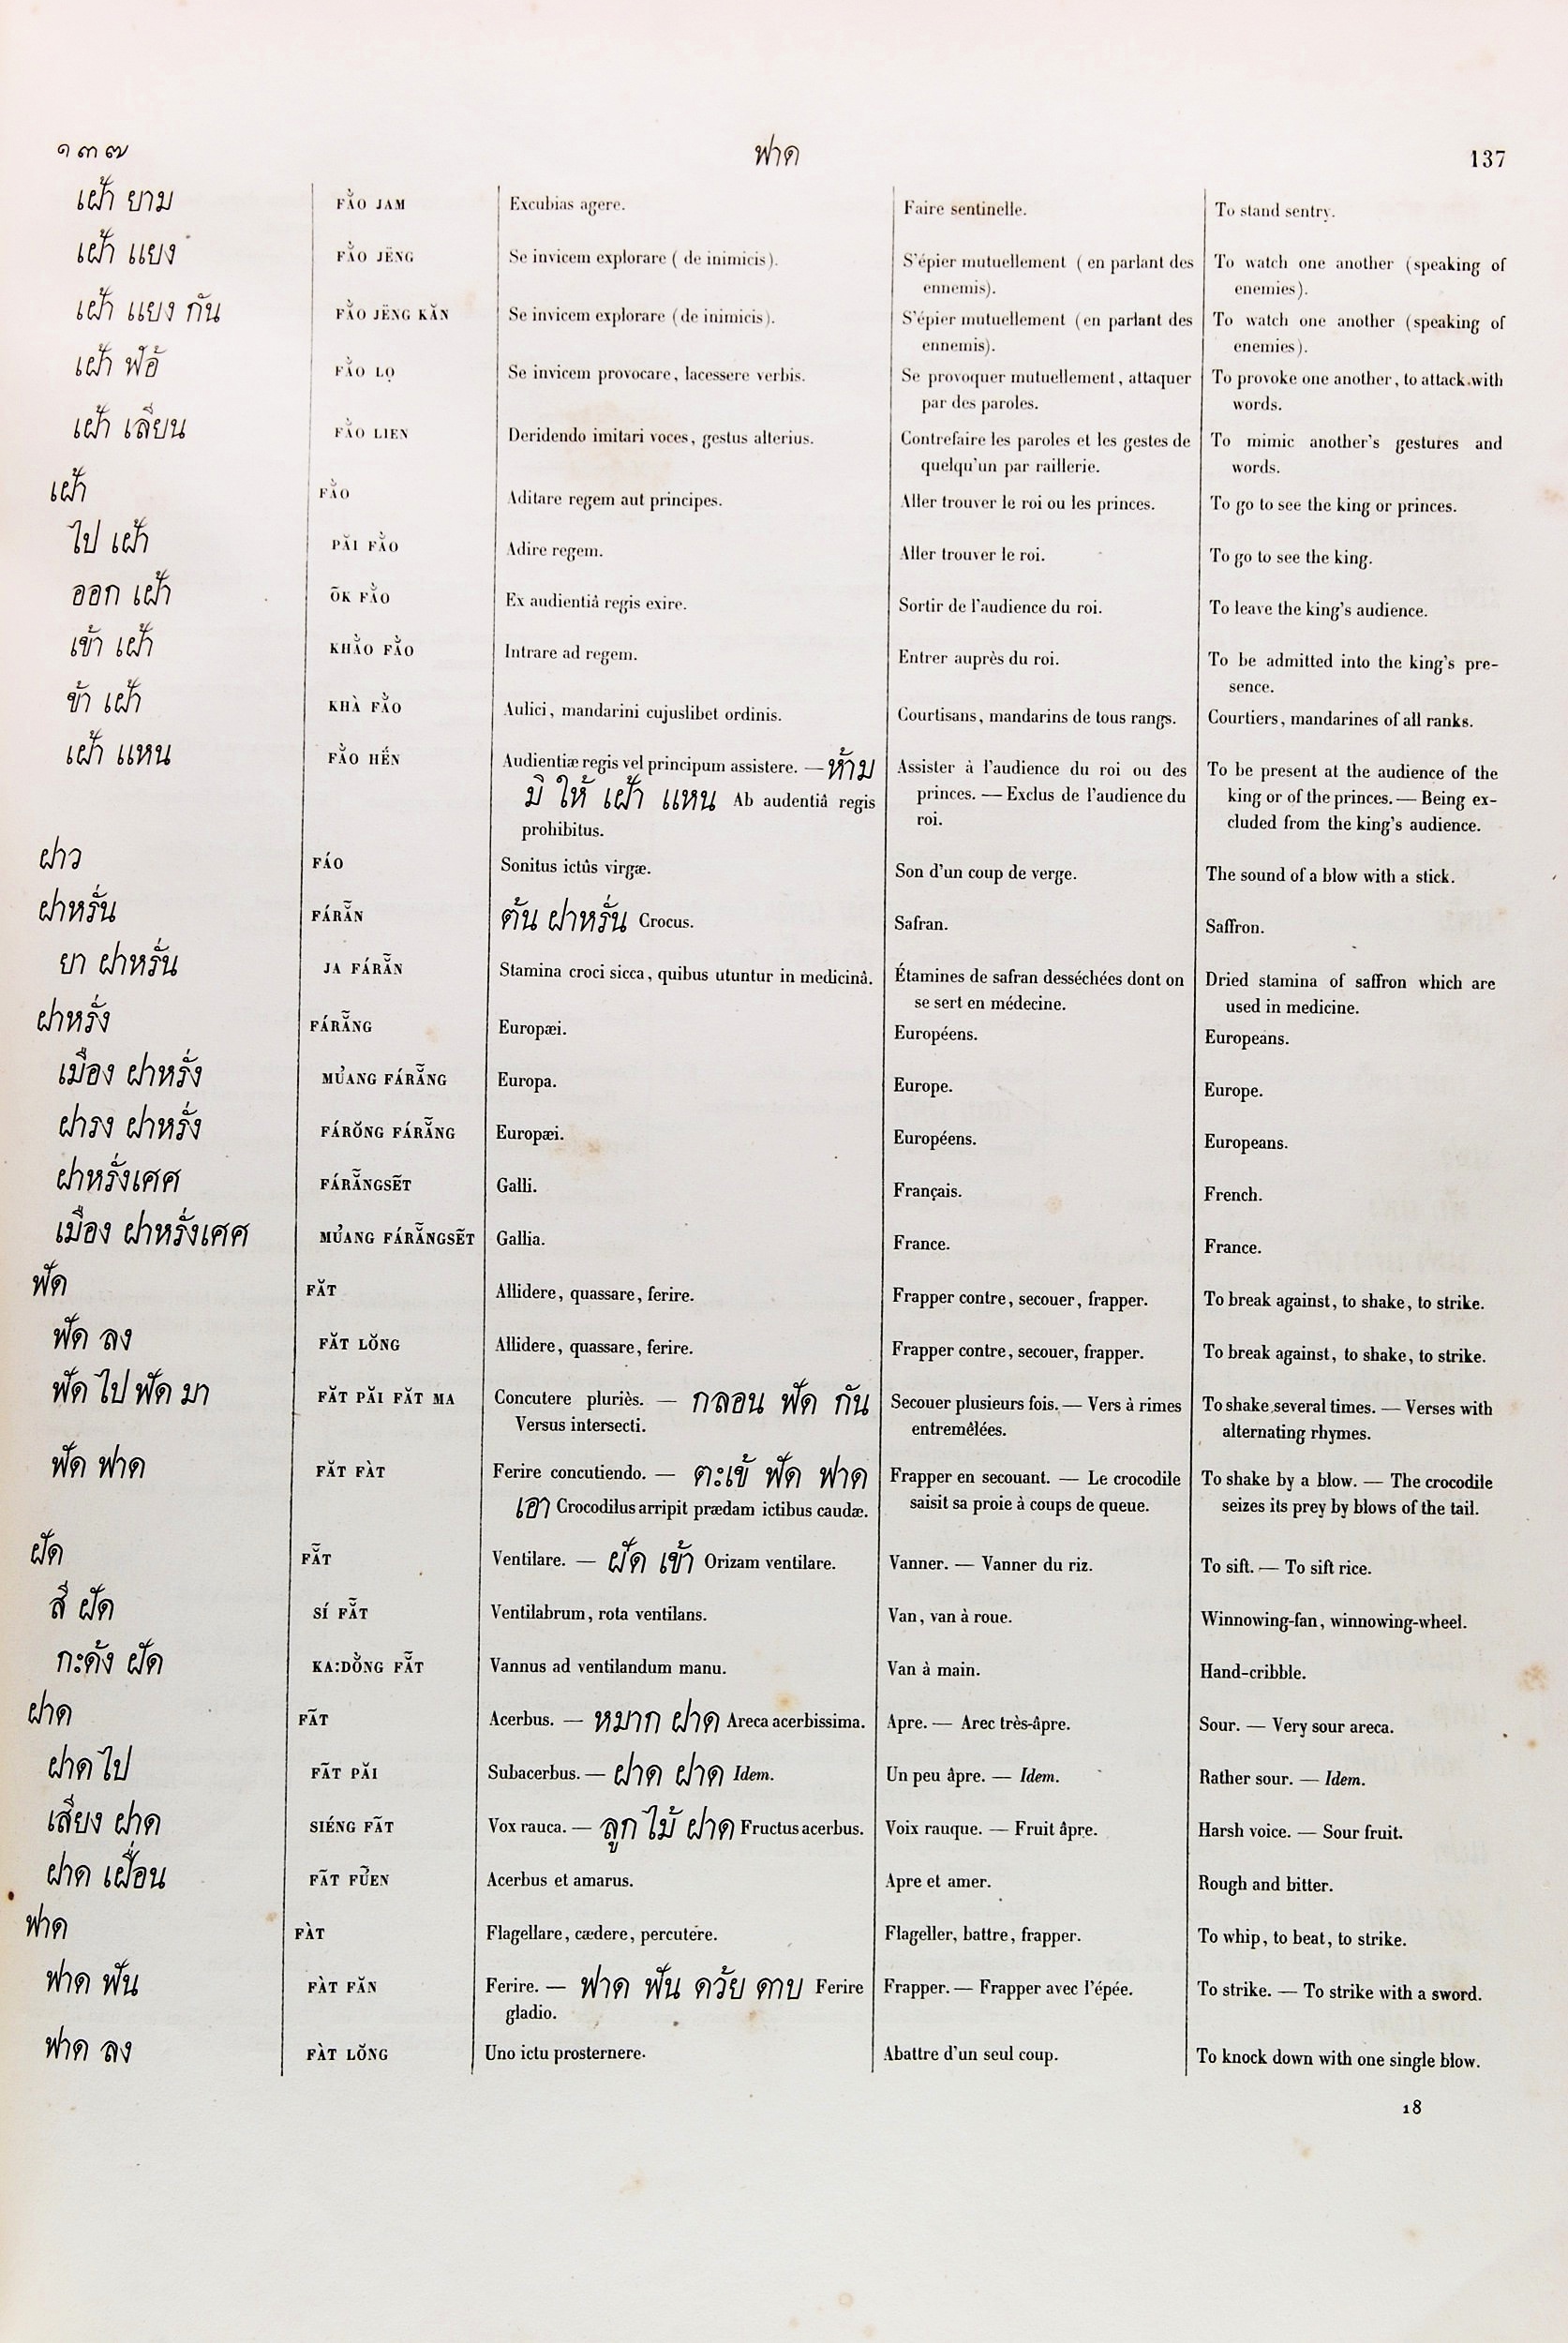 ๑๓๗ ฟาด 137
เฝ้า ยาม FÀO JAM Excubias agere. Faire sentinelle. To stand sentry.
เฝ้า แยง FÀO JËNG Se invicem explorare ( de inimicis). S'épier mutuellement ( en parlant des To watch one another (speaking of
ennemis). enemies).
เฝ้า แยง กัน FÀO JËNG KĂN Se invicem explorare (de inimicis). S'épier mutuellement (en parlant des To watch one another (speaking of
ennemis). enemies).
เฝ้า ฬ้อ FÀO LỌ Se invicem provocare, lacessere verbis. Se provoquer mutuellement, attaquer To provoke one another, to attack with
par des paroles. words.
เฝ้า เลียน FÀO LIEN Deridendo imitari voces, gestus alterius. Contrefaire les paroles et les gestes de To mimic another's gestures and
quelqu'un par raillerie. words.
เฝ้า FÀO Aditare regem aut principes. Aller trouver le roi ou les princes. To go to see the king or princes.
ไป เฝ้า PĂI FÀO Adire regem. Aller trouver le roi. To go to see the king.
ออก เฝ้า ÕK FÀO Ex audientiâ regis exire. Sortir de l'audience du roi. To leave the king's audience.
เข้า เฝ้า KHÀO FÀO Intrare ad regem. Entrer auprès du roi. To be admitted into the king's pre-
sence.
ข้า เฝ้า KHÀ FÀO Aulici, mandarini cujuslibet ordinis. Courtisans, mandarins de tous rangs. Courtiers, mandarines of all ranks.
เฝ้า แหน FÀO HẾN Audientiæ regis vel principum assistere. — ห้าม Assister à l'audience du roi ou des To be present at the audience of the
มิ ให้ เฝ้า แหน Ab audentiâ regis princes. — Exclus de l'audience du king or of the princes. — Being ex-
prohibitus. roi. cluded from the king's audience.
ฝาว FÁO Sonitus ictûs virgæ. Son d'un coup de verge. The sound of a blow with a stick.
ฝาหรั่น FÁRẴN ต้น ฝาหรั่น Crocus. Safran. Saffron.
ยา ฝาหรั่น JA FÁRẴN Stamina croci sicca, quibus utuntur in medicinâ. Étamines de safran desséchées dont on Dried stamina of saffron which are
se sert en médecine. used in medicine.
ฝาหรั่ง FÁRẴNG Europæi. Européens. Europeans.
เมือง ฝาหรั่ง MỦANG FÁRẴNG Europa. Europe. Europe.
ฝารง ฝาหรั่ง FÁRŎNG FÁRẴNG Europæi. Européens. Europeans.
ฝาหรั่งเศศ FÁRẴNGSẼT Galli. Français. French.
เมือง ฝาหรั่งเศศ MỦANG FÁRẴNGSẼT Gallia. France. France.
ฟัด FĂT Allidere, quassare, ferire. Frapper contre, secouer, frapper. To break against, to shake, to strike.
ฟัด ลง FĂT LŎNG Allidere, quassare, ferire. Frapper contre, secouer, frapper. To break against, to shake, to strike.
ฟัด ไป ฟัด มา FĂT PĂI FĂT MA Concutere pluriès. — กลอน ฟัด กัน Secouer plusieurs fois. — Vers à rimes To shake several times. — Verses with
Versus intersecti. entremêlées. alternating rhymes.
ฟัด ฟาด FĂT FÀT Ferire concutiendo. — ตะเข้ ฟัด ฟาด Frapper en secouant. — Le crocodile To shake by a blow. — The crocodile
เอา Crocodilus arripit prædam ictibus caudæ. saisit sa proie à coups de queue. seizes its prey by blows of the tail.
ฝัด FẴT Ventilare. — ฝัด เข้า Orizam ventilare. Vanner. — Vanner du riz. To sift. — To sift rice.
สี ฝัด SÍ FẴT Ventilabrum, rota ventilans. Van, van à roue. Winnowing-fan, winnowing-wheel.
กะด้ง ฝัด KA:DỒNG FẴT Vannus ad ventilandum manu. Van à main. Hand-cribble.
ฝาด FÃT Acerbus. — หมาก ฝาด Areca acerbissima. Apre. — Arec très-âpre. Sour. — Very sour areca.
ฝาด ไป FÃT PĂI Subacerbus. — ฝาด ฝาด Idem. Un peu âpre. — Idem. Rather sour. — Idem.
เสียง ฝาด SIÉNG FÃT Vox rauca. — ลูก ไม้ ฝาด Fructus acerbus. Voix rauque. — Fruit âpre. Harsh voice. — Sour fruit.
ฝาด เฝื่อน FÃT FỦEN Acerbus et amarus. Apre et amer. Rough and bitter.
ฟาด FÀT Flagellare, cædere, percutere. Flageller, battre, frapper. To whip, to beat, to strike.
ฟาด ฟัน FÀT FĂN Ferire. — ฟาด ฟัน ดว้ย ดาบ Ferire Frapper. — Frapper avec l'épée. To strike. — To strike with a sword.
gladio.
ฟาด ลง FÀT LŎNG Uno ictu prosternere. Abattre d'un seul coup. To knock down with one single blow.
18